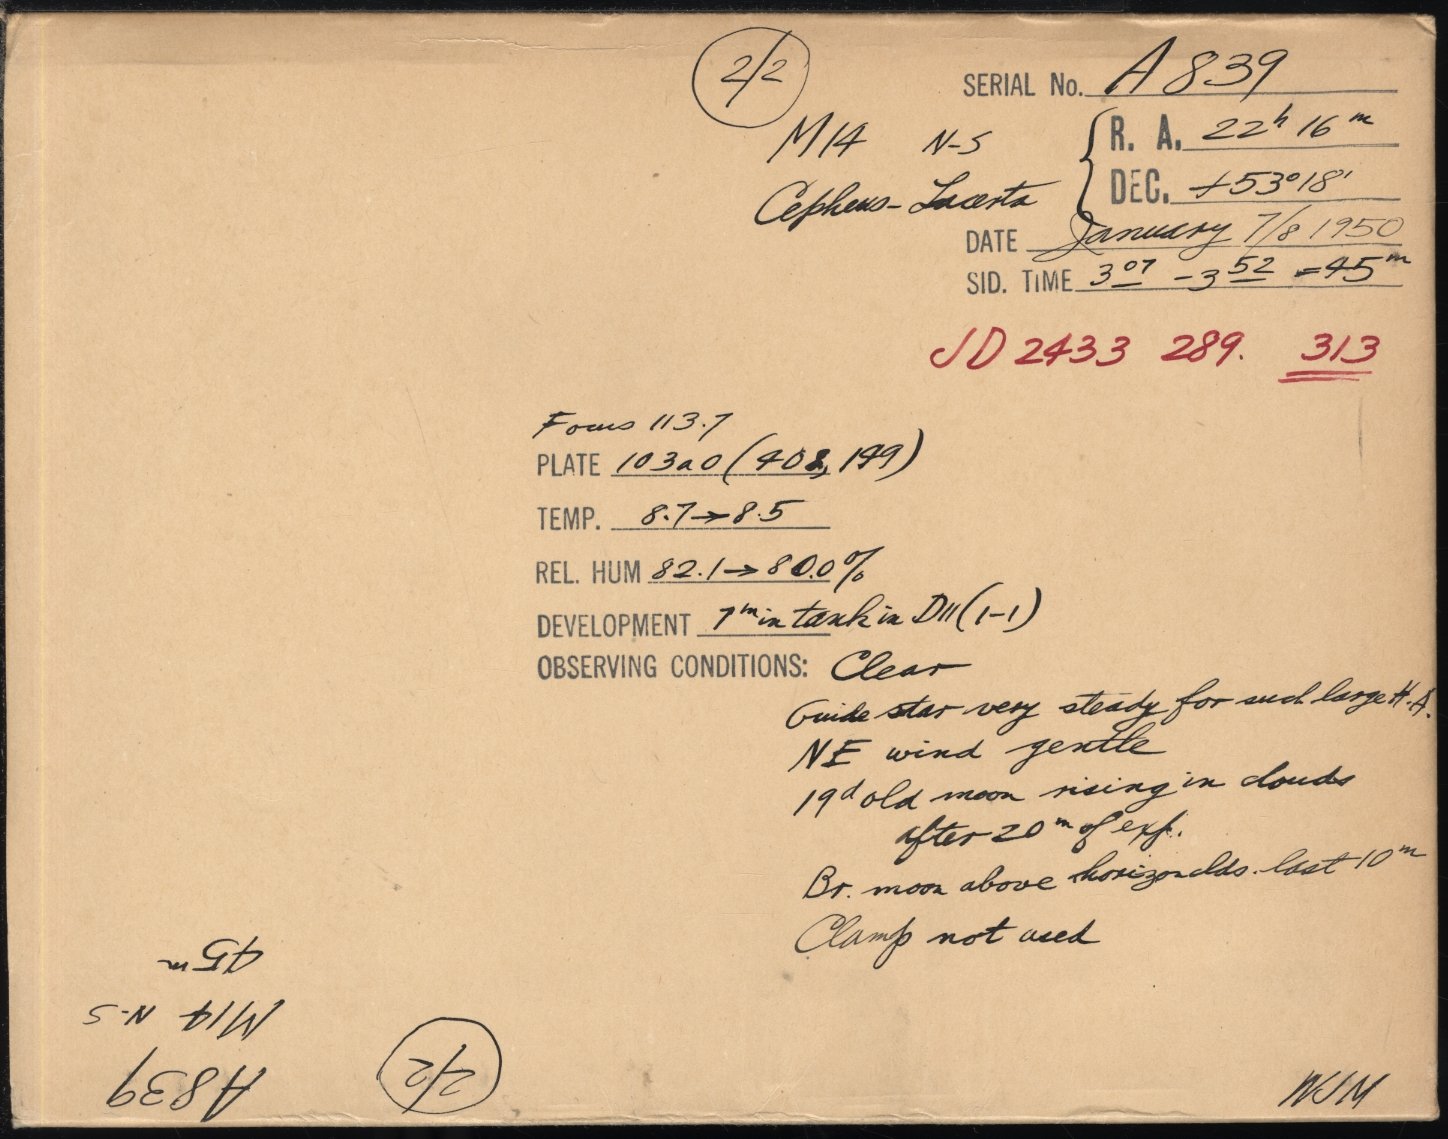 2/2
SERIAL No. A 839
M14 N-S
R. A. 22h 16m
Cepheus-Lacerta
DEC. +53°18'
DATE January 7/8 1950
SID. TIME 3 07 - 3 52 = 45m
JD 2433 289. 313
Focus 113.7
PLATE 103aO (408, 149)
TEMP. 8.7→8.5
REL. HUM 82.1→80.0%
DEVELOPMENT 7m in tank in D11 (1-1)
OBSERVING CONDITIONS: Clear
Guide star very steady for such large H.A.
NE wind gentle
19d old moon rising in clouds
after 20m of exp.
Br. moon above horizon clds. last 10m
Clamp not used
WJM
A839
M14 N-S
45m
2/2